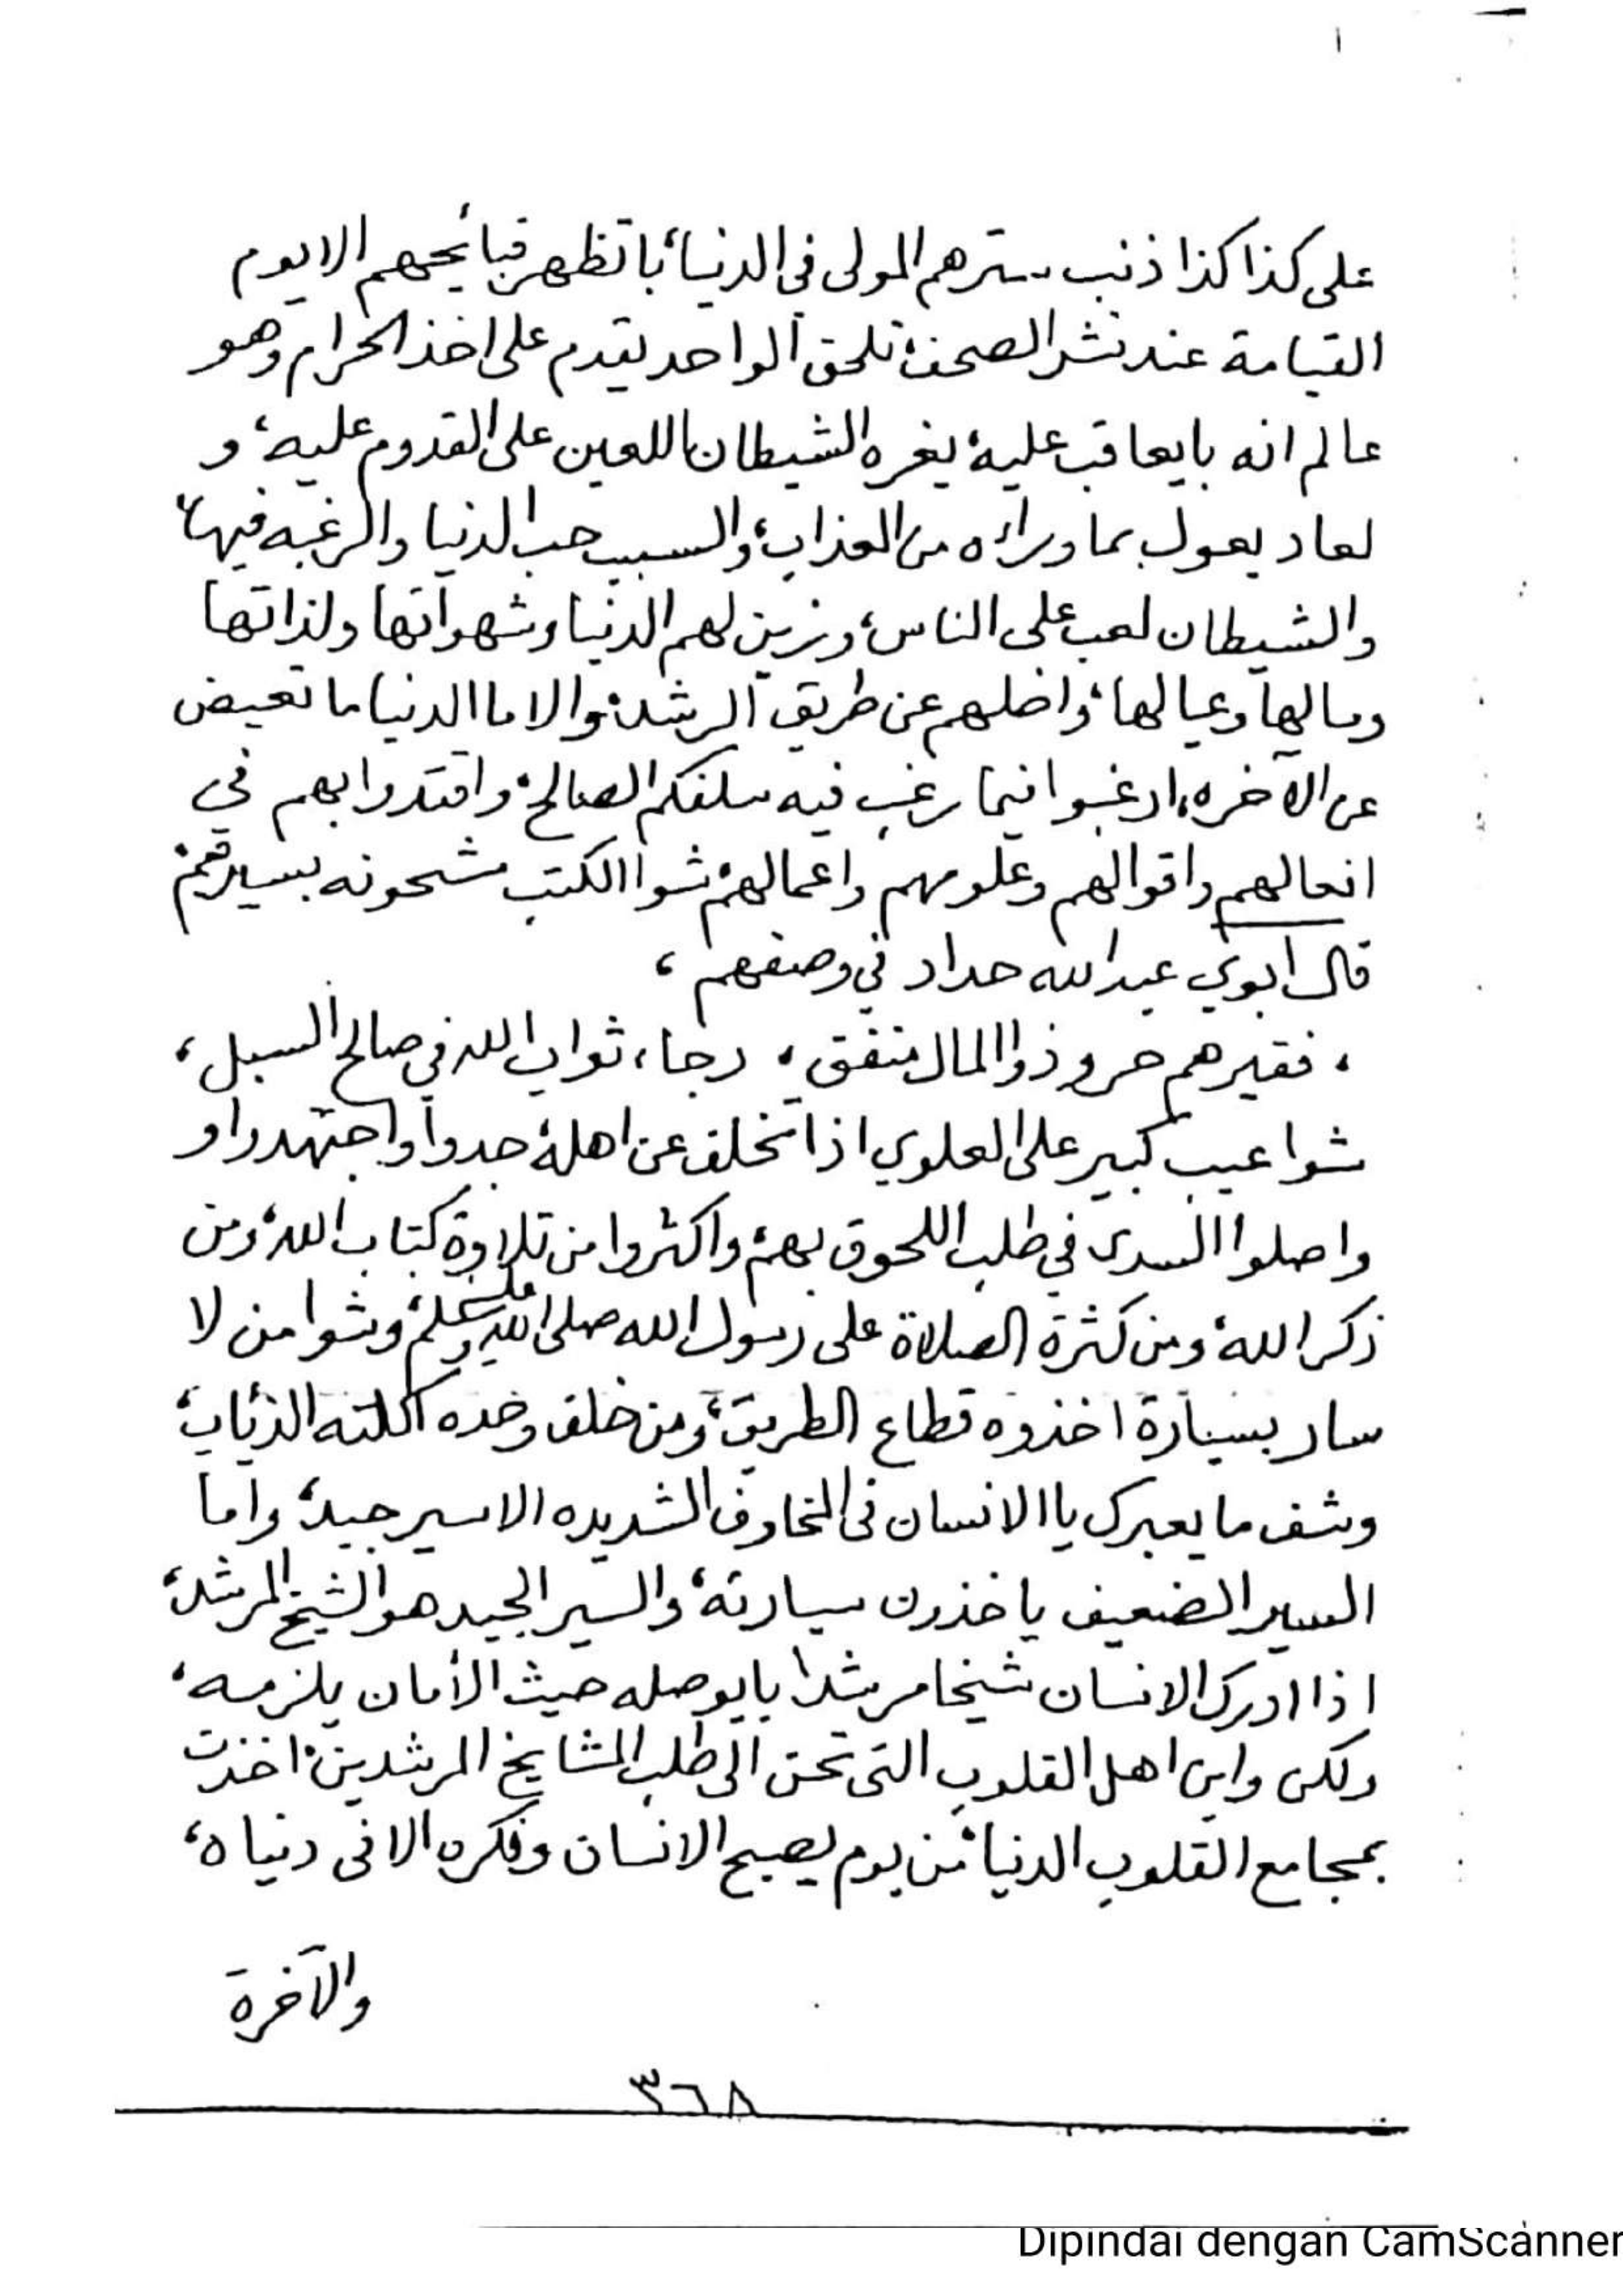 على كذا كذا ذنب سترهم المولى فى الدنيا، با تظهر قبائحهم الا يوم
القيامة عند نشر الصحف، تلحق الواحد يقدم على اخذ الحرام وهو
عالم انه بايعاقب عليه، يغره الشيطان اللعين على القدوم عليه، و
لعاد يعول بما وراءه من العذاب، والسبب حب الدنيا والرغبه فيها،
والشيطان لعب على الناس، وزين لهم الدنيا وشهواتها ولذاتها
ومالها وعيالها، واضلهم عن طريق الرشد، والا ما الدنيا ما تعيض
عن الآخره، ارغبوا فيما رغب فيه سلفكم الصالح، واقتدوا بهم في
افعالهم واقوالهم وعلومهم واعمالهم، شوا الكتب مشحونه بسيرهم،
قال ابوي عبدالله حداد في وصفهم ،
، فقيرهم حر وذوا المال منفق ، رجاء ثواب الله في صالح السبل ،
شوا عيب كبير على العلوي اذا تخلف عن اهله، جدوا واجتهدوا و
واصلوا السرى في طلب اللحوق بهم، واكثروا من تلاوة كتاب الله، ومن
ذكر الله، ومن كثرة الصلاة على رسول الله صلى الله عليه وسلم، وشوا من لا
سار بسيارة اخذوه قطاع الطريق، ومن خلف وحده اكلته الذئاب،
وشف ما يعبرك يا الانسان فى المخاوف الشديده الا سير جيد، واما
السير الضعيف ياخذون سيارته، والسير الجيد هو الشيخ المرشد،
اذا ادرك الانسان شيخا مرشدا بايوصله حيث الأمان يلزمه،
ولكن واين اهل القلوب التى تحن الى طلب المشايخ المرشدين، اخذت
بمجامع القلوب الدنيا، من يوم يصبح الانسان وفكره الا فى دنياه،
والآخرة
٣٦٨
Dipindai dengan CamScanner